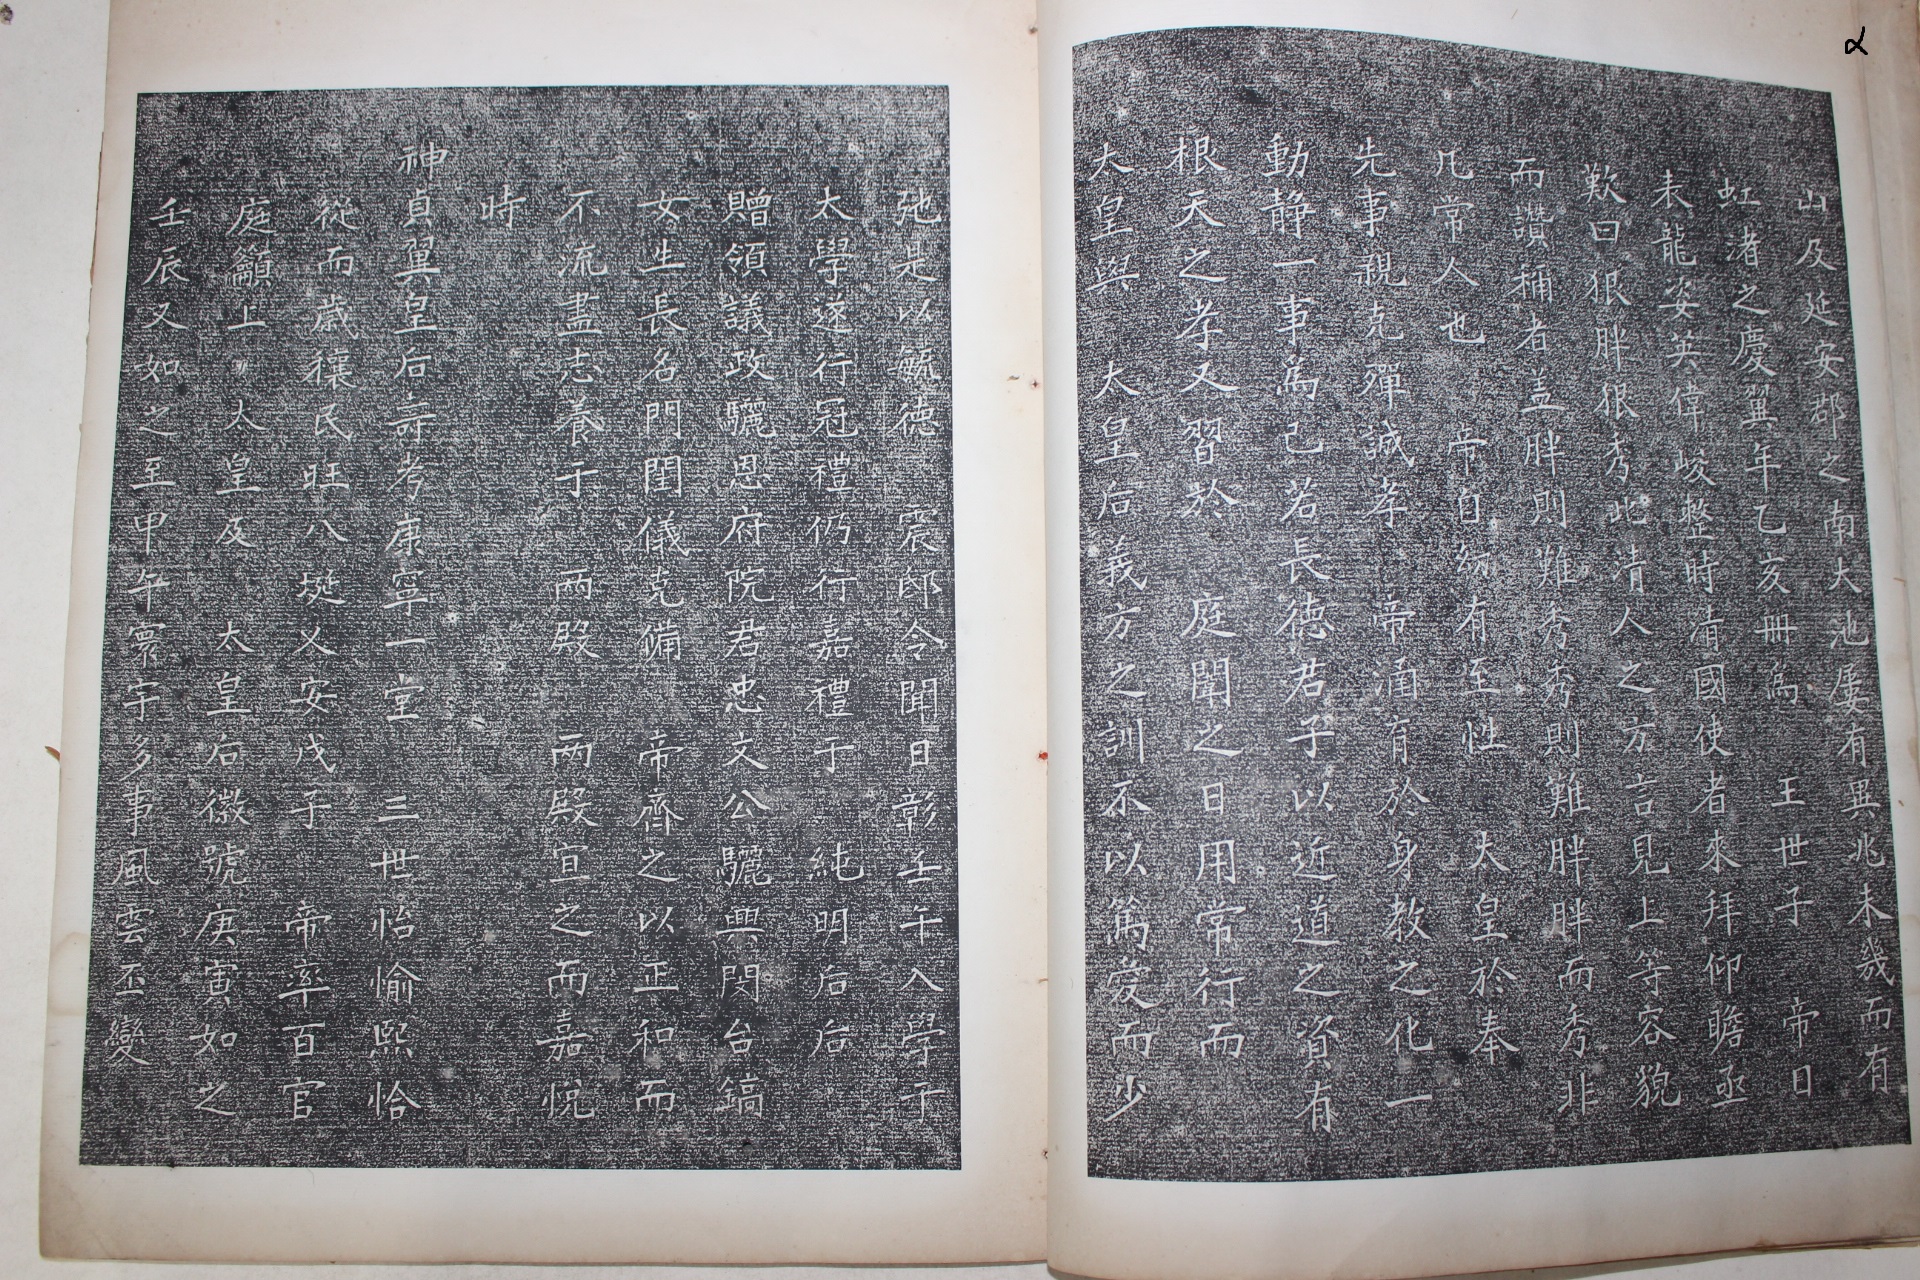 α
山及延安郡之南大池屢有異兆未幾而有
虹渚之慶翼年乙亥冊爲 王世子 帝日
表龍姿英偉峻整時淸國使者來拜仰瞻亟
歎曰狠胖狠秀此淸人之方言見上等容貌
而讚稱者盖胖則難秀秀則難胖胖而秀非
凡常人也 帝自幼有至性 太皇於奉
先事親克殫誠孝 帝涵育於身教之化一
動靜一事爲已若長德君子以近道之資有
根天之孝又習於 庭闈之日用常行而
太皇與 太皇后義方之訓不以篤愛而少
弛是以毓德 震邸令聞日彰壬午入學于
太學遂行冠禮仍行嘉禮于 純明后后
贈領議政驪恩府院君忠文公驪興閔台鎬
女生長名門閨儀克備 帝齊之以正和而
不流盡志養于 兩殿 兩殿宜之而嘉悅
時
神貞翼皇后壽考康寧一堂 三世怡愉熙恰
從而歲穰民旺八埏乂安戊子 帝率百官
庭籲上〃太皇及 太皇后徽號庚寅如之
壬辰又如之至甲午寰宇多事風雲丕變